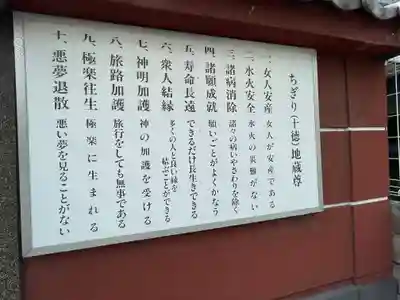 ちぎり(十徳)地蔵尊
一、女人安産 女人が安産である
二、水火安全 水火の災難がない
三、諸病消除 諸々の病いやさわりを除く
四、諸願成就 願いごとがよくかなう
五、寿命長遠 できるだけ長生きできる
六、衆人結縁 多くの人と良い縁を結ぶことができる
七、神明加護 神の加護を受ける
八、旅路加護 旅行をしても無事である
九、極楽往生 極楽に生まれる
十、悪夢退散 悪い夢を見ることがない